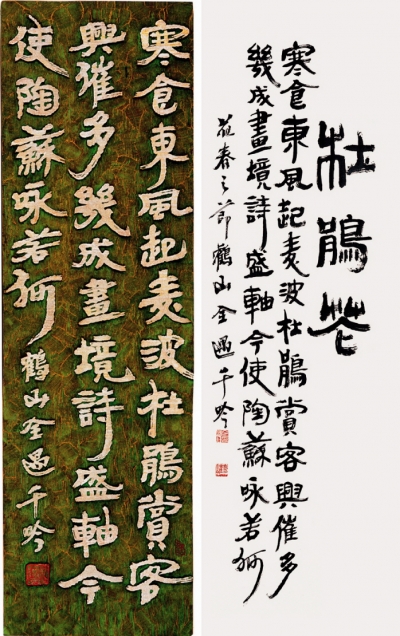 寒食東風起麦波杜鵑賞客
興催多幾成畫境詩盛軸今
使陶蘇咏若何
鶴山全遇千吟
杜鵑花
寒食東風起麦波杜鵑賞客興催多
幾成畫境詩盛軸今使陶蘇咏若何
花春之節鶴山全遇千吟